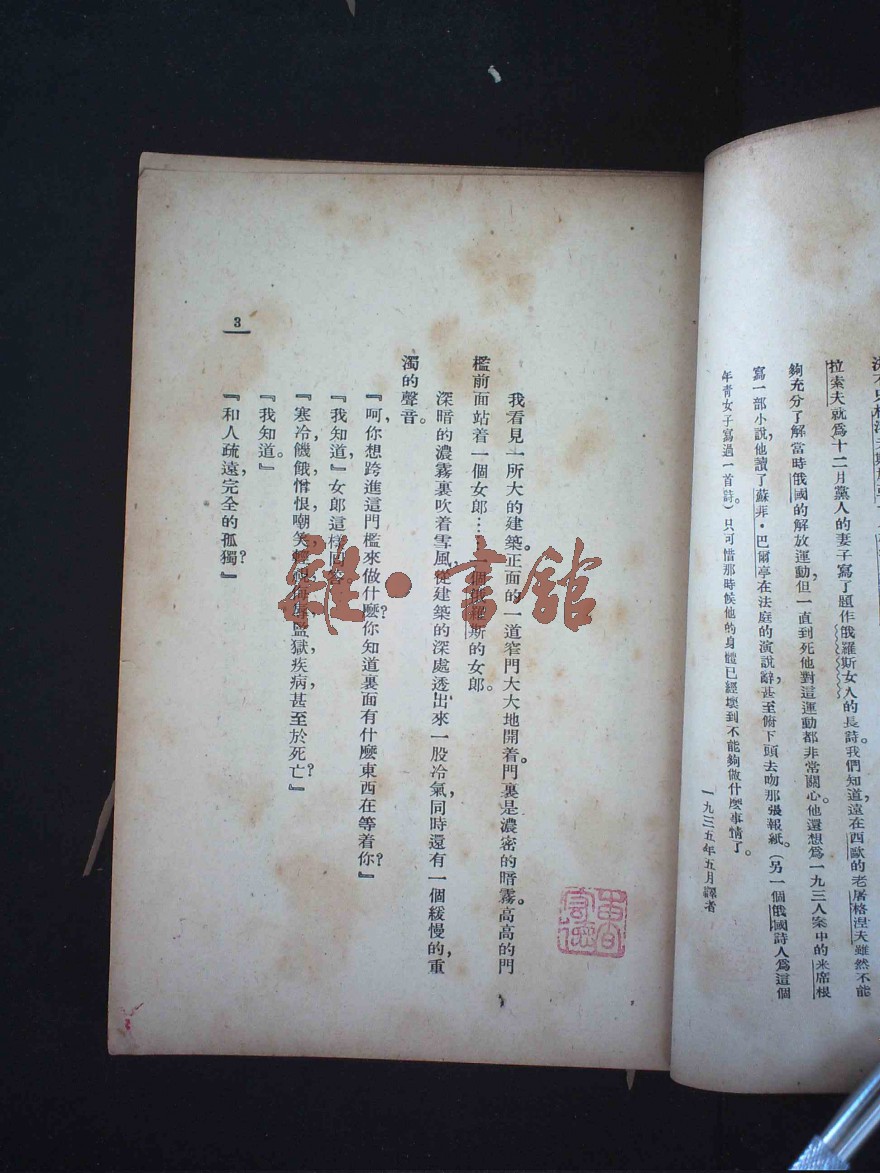 拉索夫就爲十二月黨人的妻子寫了題作俄羅斯女人的長詩。我們知道，遠在西歐的老屠格涅夫雖然不能
夠充分了解當時俄國的解放運動，但一直到死他對這運動都非常關心。他還想爲一九三人案中的米席根
寫一部小說，他讀了蘇非·巴爾亭在法庭的演說辭，甚至俯下頭去吻那張報紙。（另一個俄國詩人爲這個
年青女子寫過一首詩。）只可惜那時候他的身體已經壞到不能夠做什麼事情了。
一九三五年五月譯者
我看見一所大的建築。正面的一道窄門大大地開着。門裏是濃密的暗霧。高高的門
檻前面站着一個女郎…一個俄羅斯的女郎。
深暗的濃霧裏吹着雪風，從建築的深處透出來一股冷氣，同時還有一個緩慢的，重
濁的聲音。
『呵，你想跨進這門檻來做什麼？你知道裏面有什麼東西在等着你？』
『我知道，』女郎這樣回答。
『寒冷，饑餓，憎恨，嘲笑，輕視，侮辱，監獄，疾病，甚至於死亡？』
『我知道。』
『和人疏遠，完全的孤獨？』
3
雜·書館